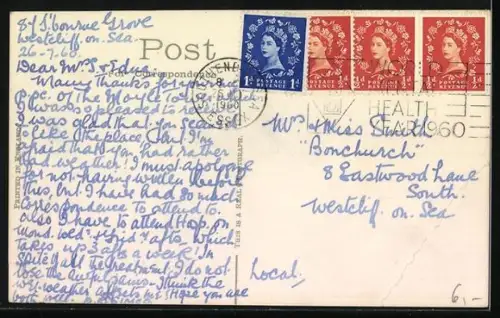 87 S'bourne Grove
Westcliff. on. Sea.
26-7-60
Dear Mrs S & Edna.
Many thanks for your nice
P.P.C. of the
I was so pleased to have it.
I was glad that you
like the place but I'm
afraid that you had rather
bad weather. I must apologise
for not having written before
this, but I have had so much
correspondence to attend to.
also I have to attend Hosp. on
Mond. Wed. & Frid's afts which
takes up 3 a week. In
spite of all the treatment, I do not
lose the Think the
wet weather affects me. Hope you are
both well.
Post
For Correspondence
PRINTED IN
THIS IS A REAL PHOTOGRAPH.
POSTAGE REVENUE
1d 1d
POSTAGE REVENUE
POSTAGE REVENUE
POSTAGE REVENUE
1960
ESSEX
HEALTH
YEAR 1960
Mrs & Miss
"Bonchurch"
8 Eastwood Lane
South.
Westcliff. on. Sea
Local.
6,-